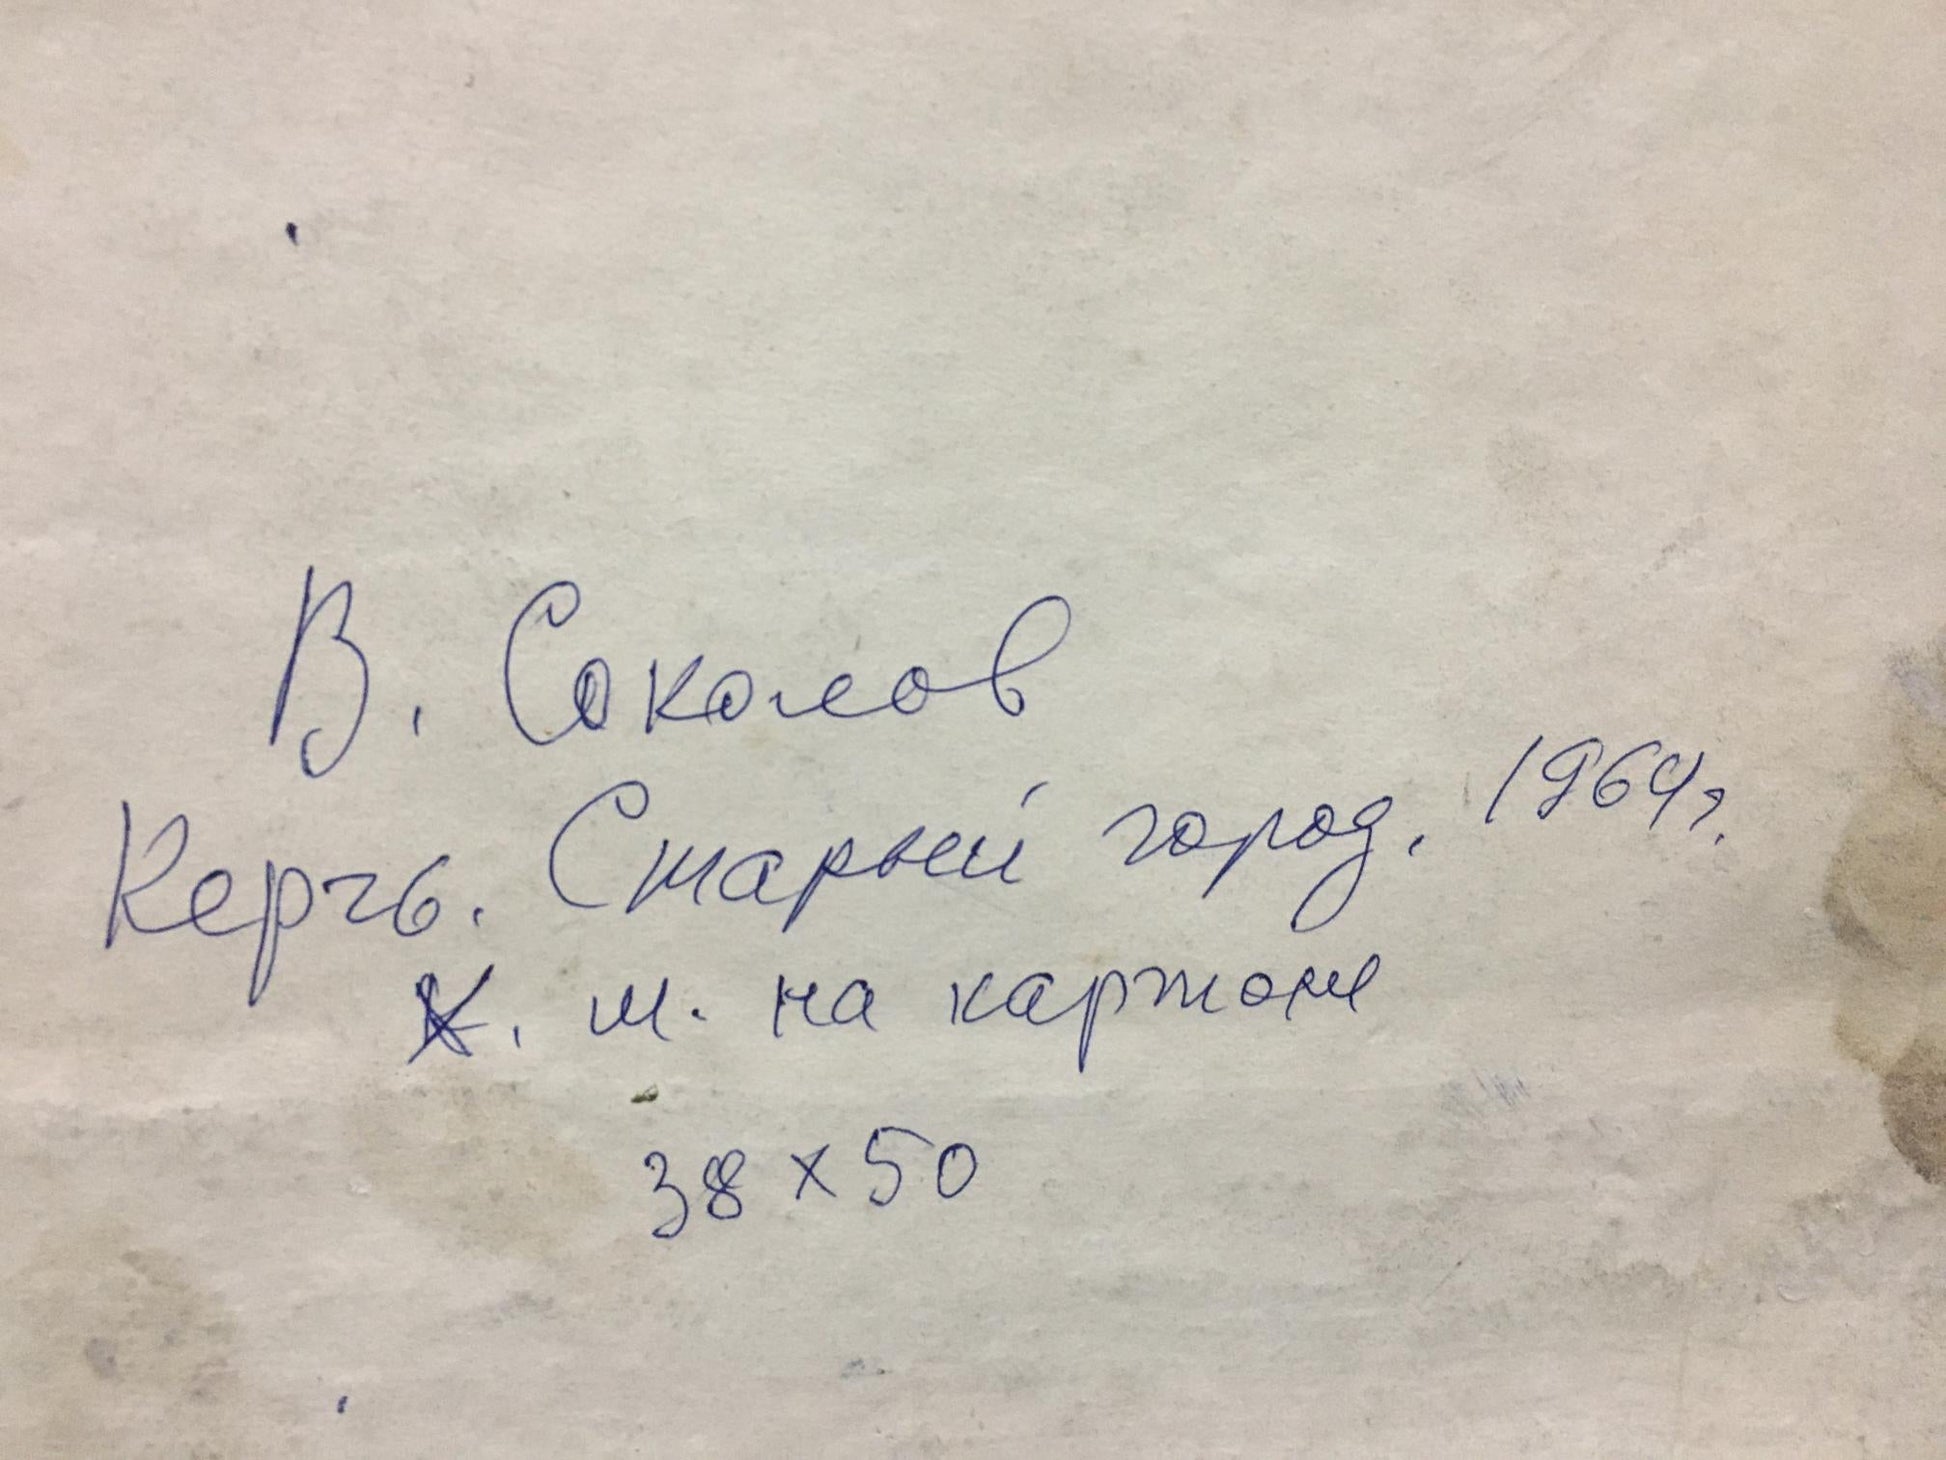 В. Соколов
Керчь. Старый город. 1964г.
х. м. на картоне
38 х 50